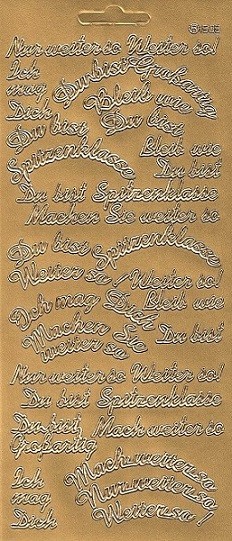 Nur weiter so Weiter so!
Ich mag Dich
Du bist Großartig
Bleib wie Du bist
Du bist Spitzenklasse
Bleib wie Du bist
Du bist Spitzenklasse
Machen Sie weiter so
Du bist Spitzenklasse
Weiter so! Weiter so!
Ich mag Dich
Bleib wie Du bist
Machen Sie weiter so
Nur weiter so Weiter so!
Du bist Spitzenklasse
Du bist Großartig
Mach weiter so
Ich mag Dich
Mach weiter so
Nur weiter so
Weiter so!